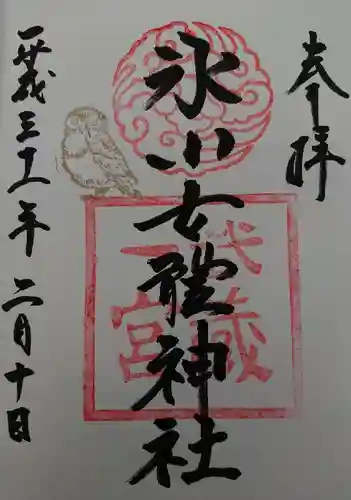 奉拝
氷川女體神社
武蔵
一宮
平成三十一年二月十日